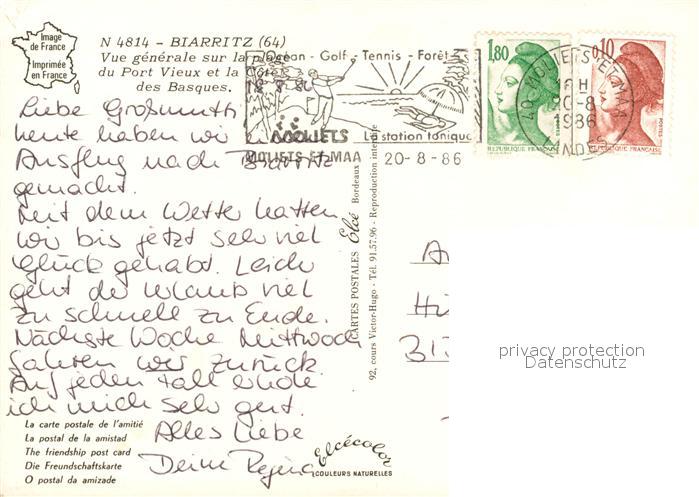 Image
de France
Imprimée
en France
N 4814 - BIARRITZ (64)
Vue générale sur la plage
du Port Vieux et la Côte
des Basques.
Océan - Golf - Tennis - Forêt
MOLIETS
La station tonique
MOLIETS ET MAA
20-8-86
1,80
REPUBLIQUE FRANÇAISE
40-MOLIETS-ET-MAA
16 H
20-8
1986
LANDES
0,10
POSTES
REPUBLIQUE FRANÇAISE
Liebe Großmutti
heute haben wir
Ausflug nach Biarritz
gemacht.
Mit dem Wetter hatten
wir bis jetzt sehr viel
Glück gehabt. Leider
geht der Urlaub viel
zu schnell zu Ende.
Nächste Woche Mittwoch
fahren wir zurück.
Auf jeden Fall erhole
ich mich sehr gut.
Alles Liebe
Deine Regina
CARTES POSTALES Elcé Bordeaux
92, cours Victor-Hugo - Tél. 91.57.96 - Reproduction interdite
Hi
privacy protection
Datenschutz
La carte postale de l'amitié
La postal de la amistad
The friendship post card
Die Freundschaftskarte
O postal da amizade
Elcécolor
COULEURS NATURELLES